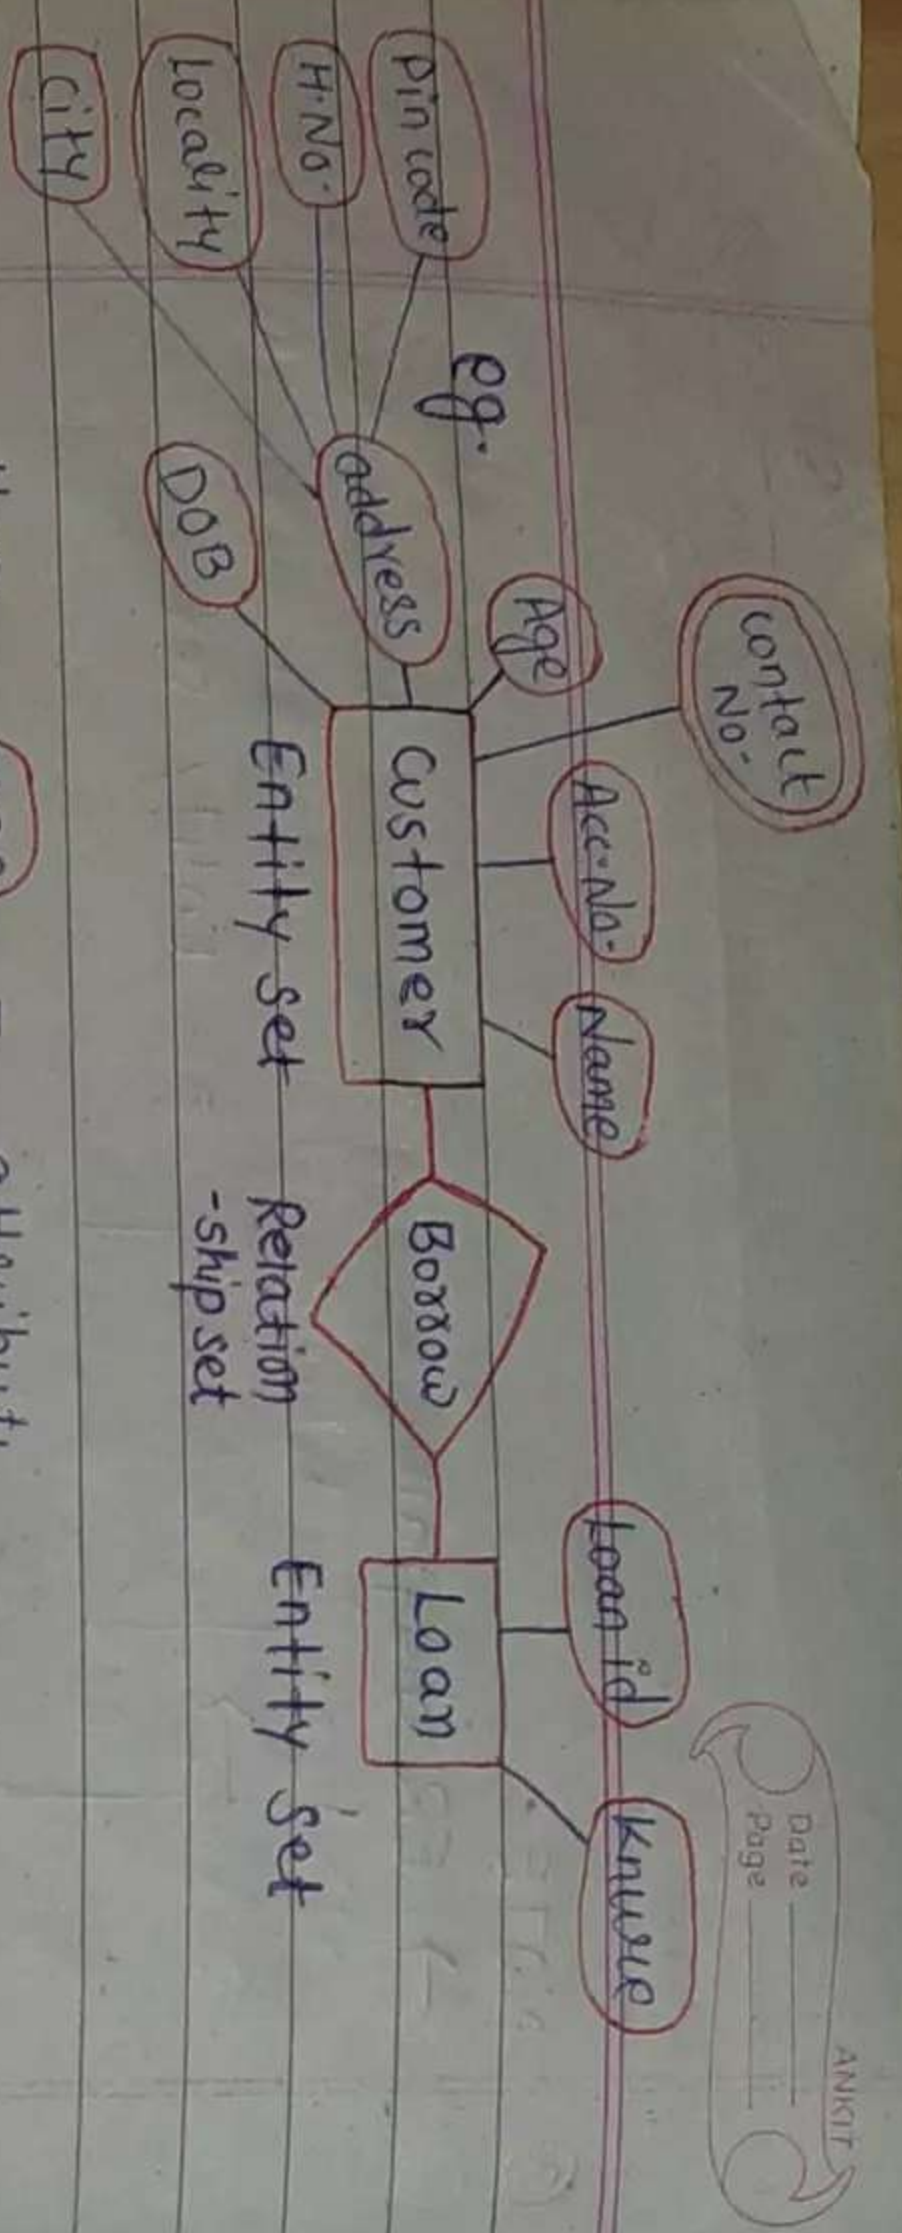 ANKIT
Date
Page
contact
No.
Acc.No.
Name
Loan id
Age
eg.
Pin code
H.No.
Locality
City
address
DOB
Customer
Borrow
Loan
Entity set
Relation
-ship set
Entity set